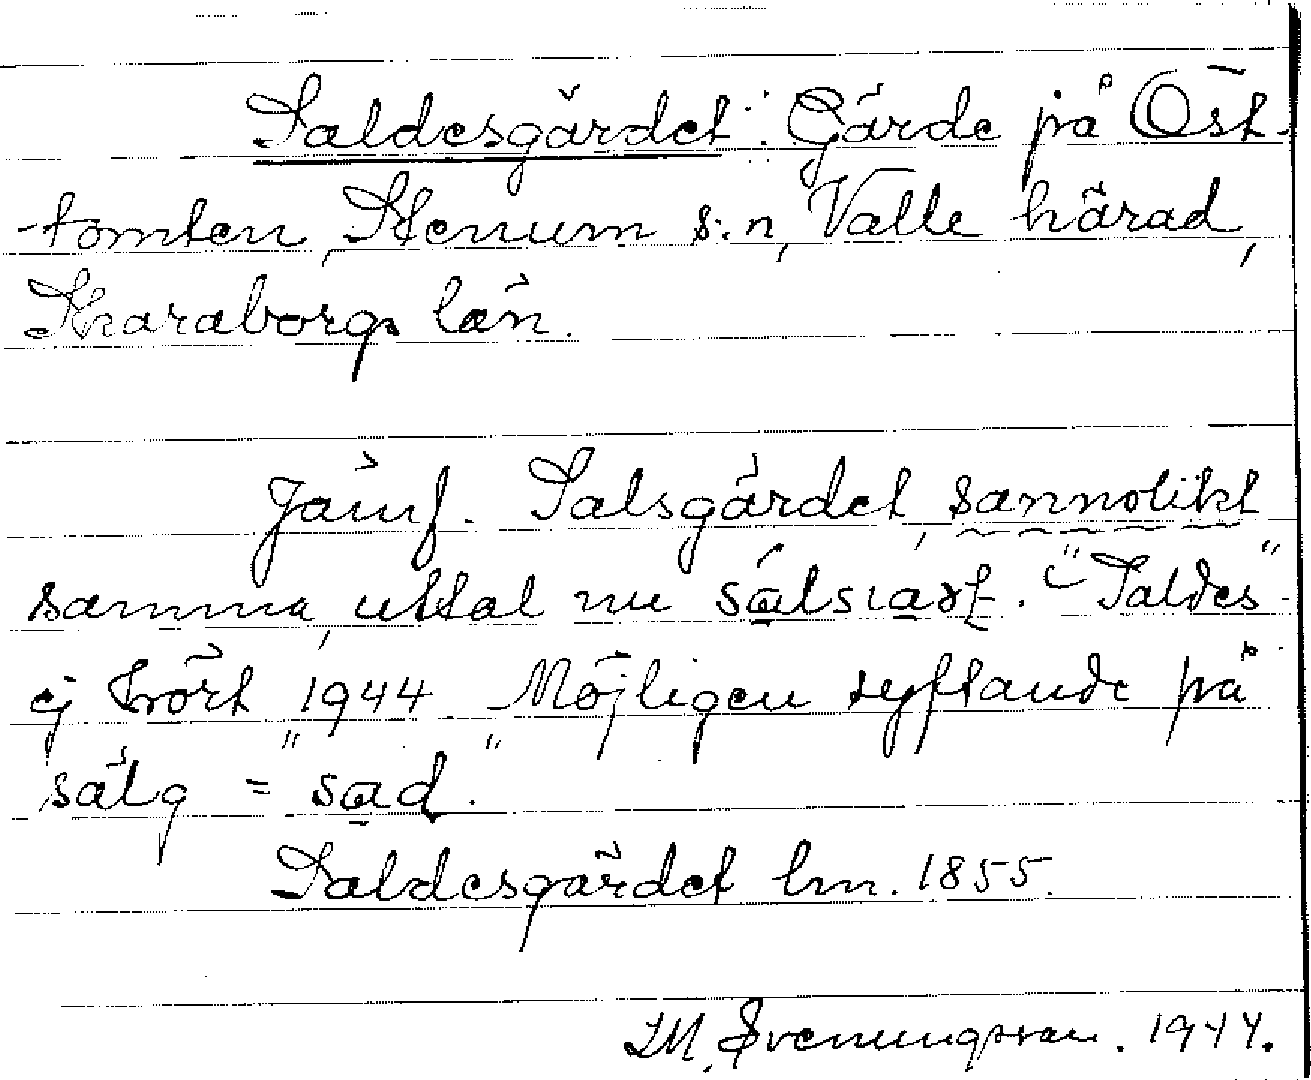 Saldesgärdet: Gärde på Öst-
-tomten, Stenum s:n, Valle härad,
Skaraborgs län.
Jämf. Salsgärdet, sannolikt
samma, uttal nu "Saldes"
ej hört 1944. Möjligen syftande på
sälg = "sad".
Saldesgärdet lm. 1855.
Svenungsson. 1944.